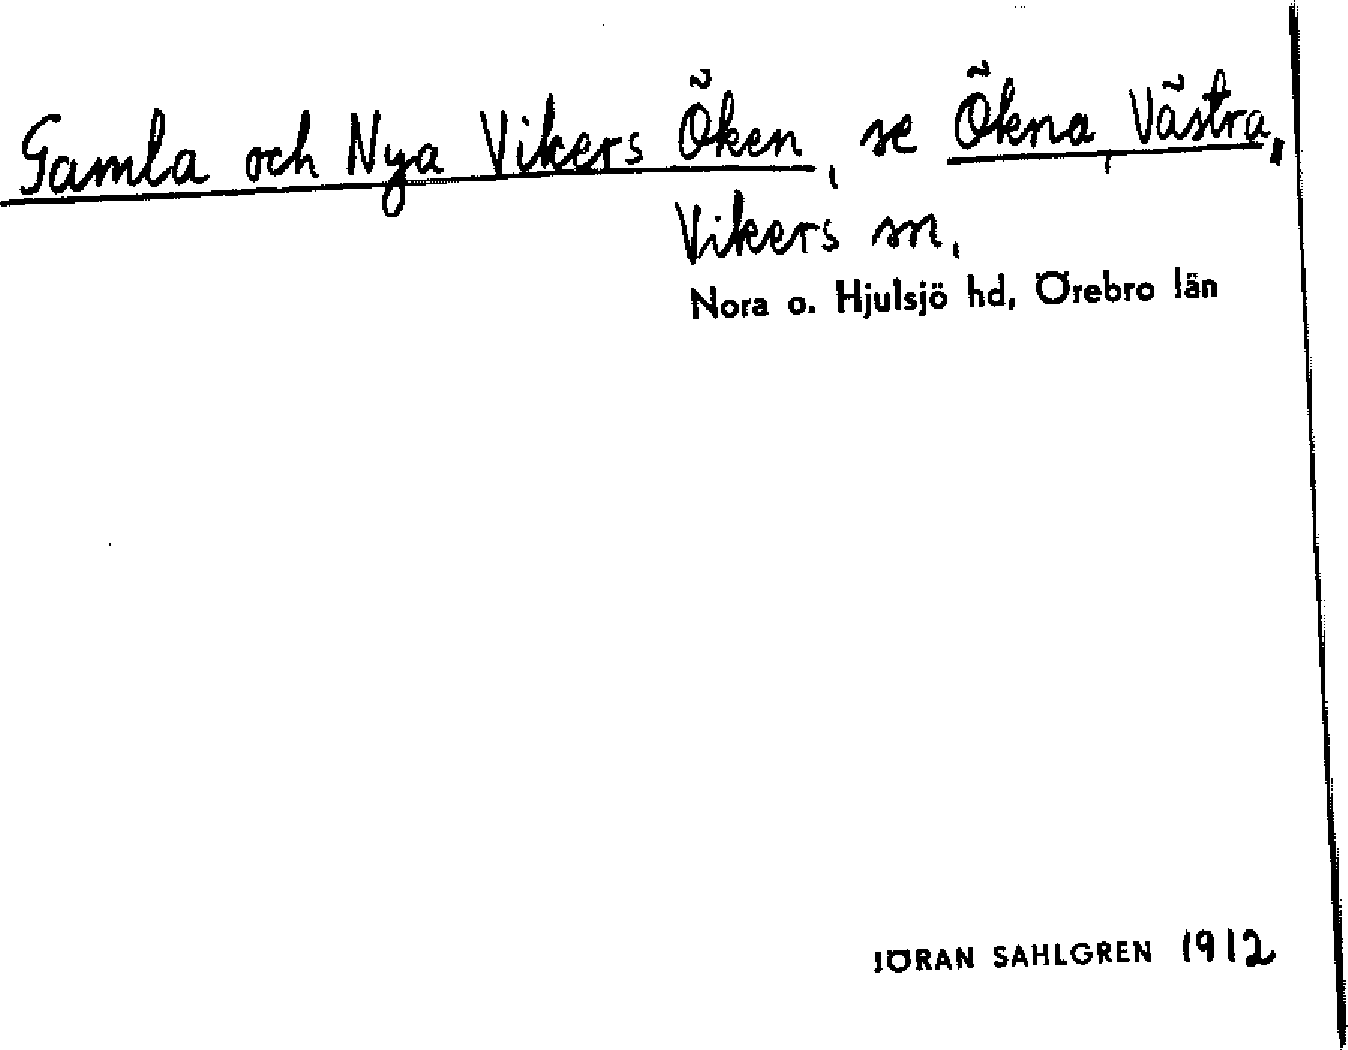 Gamla och Nya Vikers Öken, se Ökna, Västra,
Vikers sn,
Nora o. Hjulsjö hd, Örebro län
JÖRAN SAHLGREN 1912